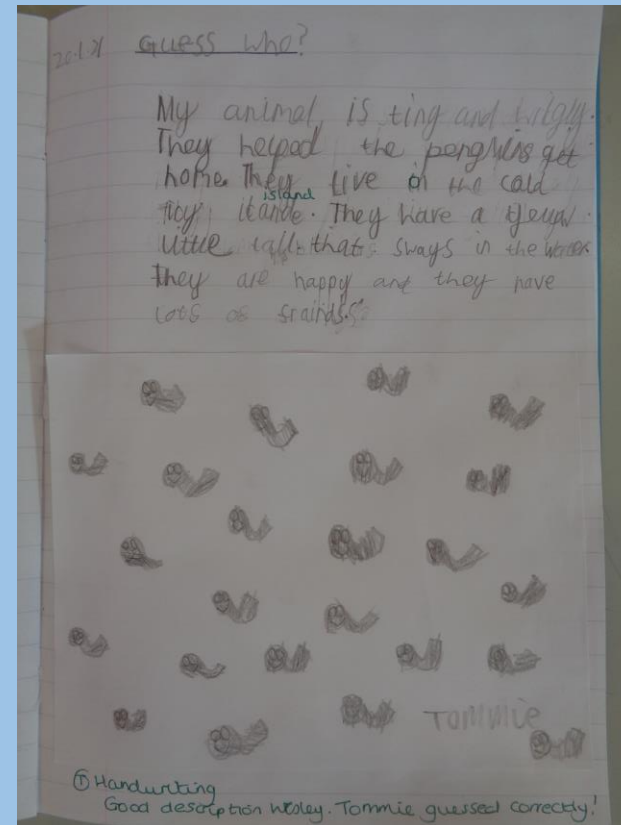 20.1.21 Guess who?
My animal is ting and wrigly.
They helped the penguins get
home. They live on the cold
island
icy ilande. They have a
little tall that sways in the water.
they are happy and they have
lots of frainds.
Tommie
T Handwriting
Good description Wesley. Tommie guessed correctly!